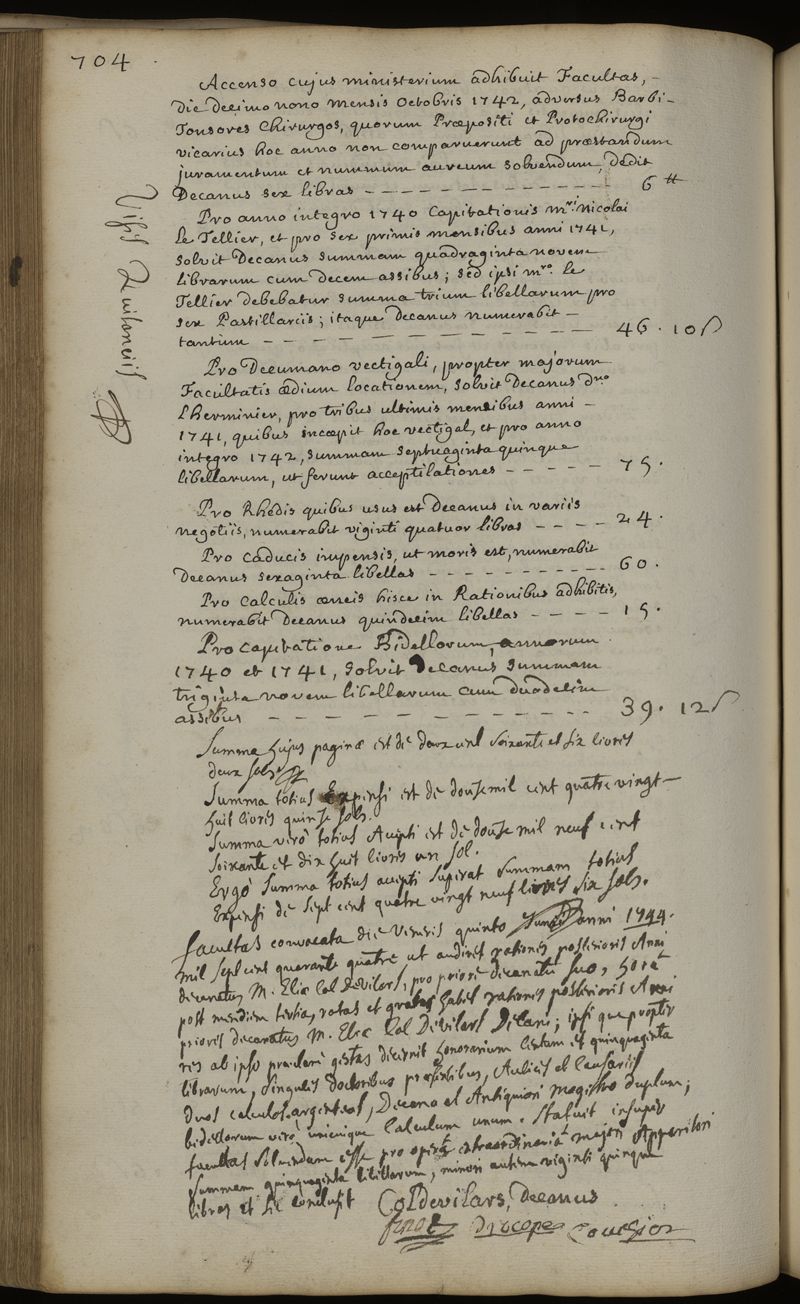 704
Accenso cujus ministerium adhibuit Facultas, -
die decimo nono mensis Octobris 1742, adversus Barbi-
Tonsores Chirurgos, quorum Præpositi et Protochirurgi
vicarius hoc anno non comparuerunt ad præstandum
juramentum et nummum aureum solvendum, dedit
Decanus sex libras - - - - - - - - - - - - 6 ₶
Pro anno integro 1740 Capitationis mri. Nicolai
Le Tellier, et pro sex primis mensibus anni 1741,
solvit Decanus summam quadraginta novem
librarum cum decem assibus; sed ipsi mro. le
Tellier debebatur summa trium libellarum pro
sex Pastillariis; itaque Decanus numerabit -
tantum - - - - - - - - - - - - - - 46. 10 s
Pro Decumano vectigali, propter majorum
Facultatis ædium locationem, solvit Decanus Dno
Lherminier, pro tribus ultimis mensibus anni -
1741, quibus incœpit hoc vectigal, et pro anno
integro 1742, summam septuaginta quinque
libellarum, ut ferunt acceptilationes - - - - - 75.
Pro Rhedis quibus usus est Decanus in variis
negotiis, numerabit viginti quatuor libras - - - - 24.
Pro caducis impensis, ut moris est, numerabit
Decanus sexaginta libellas - - - - - - - - - 60.
Pro calculis æneis hisce in Rationibus adhibitis,
numerabit Decanus quindecim libellas - - - - - 15.
Pro capitatione Bidellorum, annorum
1740 et 1741, solvit Decanus summam
triginta novem libellarum cum duodecim
assibus - - - - - - - - - - - - 39. 12 s
Summa hujus paginæ est de deux cent soixante et six livres
deux sols
Summa totius Expensi est de douse mil cent quatre vingt -
huit livres quinse sols.
Summa verò totius accepti est de douse mil neuf cent
soixante et dix huit livres un sol.
Ergò summa totius accepti superat summam totius
Expensi de sept cent quatre vingt neuf livres six sols.
facultas convocata die Veneris quinto Junii anni 1744.
mil sept cent quarante quatre ut audiret rationes posterioris Anni
decanatus M. Eliæ Col Devilars, pro priore decanatu suo, horâ
post meridiem tertia, ratas et gratas habet rationes posterioris Anni
prioris decanatus M. Eliæ Col Devilars Decani; ipsi que propter
res ab ipso præclare gestas decernit honorarium centum et quinquaginta
librarum, singulis doctoribus præsentibus, Aulicis et Causariis
duos calculos argenteos, Decano et Antiquiori magistro duplum;
bidellorum verò unicuique calculum unum. Statuit insuper
facultas solvendam esse pro operâ extraordinariâ majori Apparitori
summam quinquaginta libellarum, minori autem viginti quinque
libras et sic conclusit Col Devilars, Decanus
Procope Couteaux